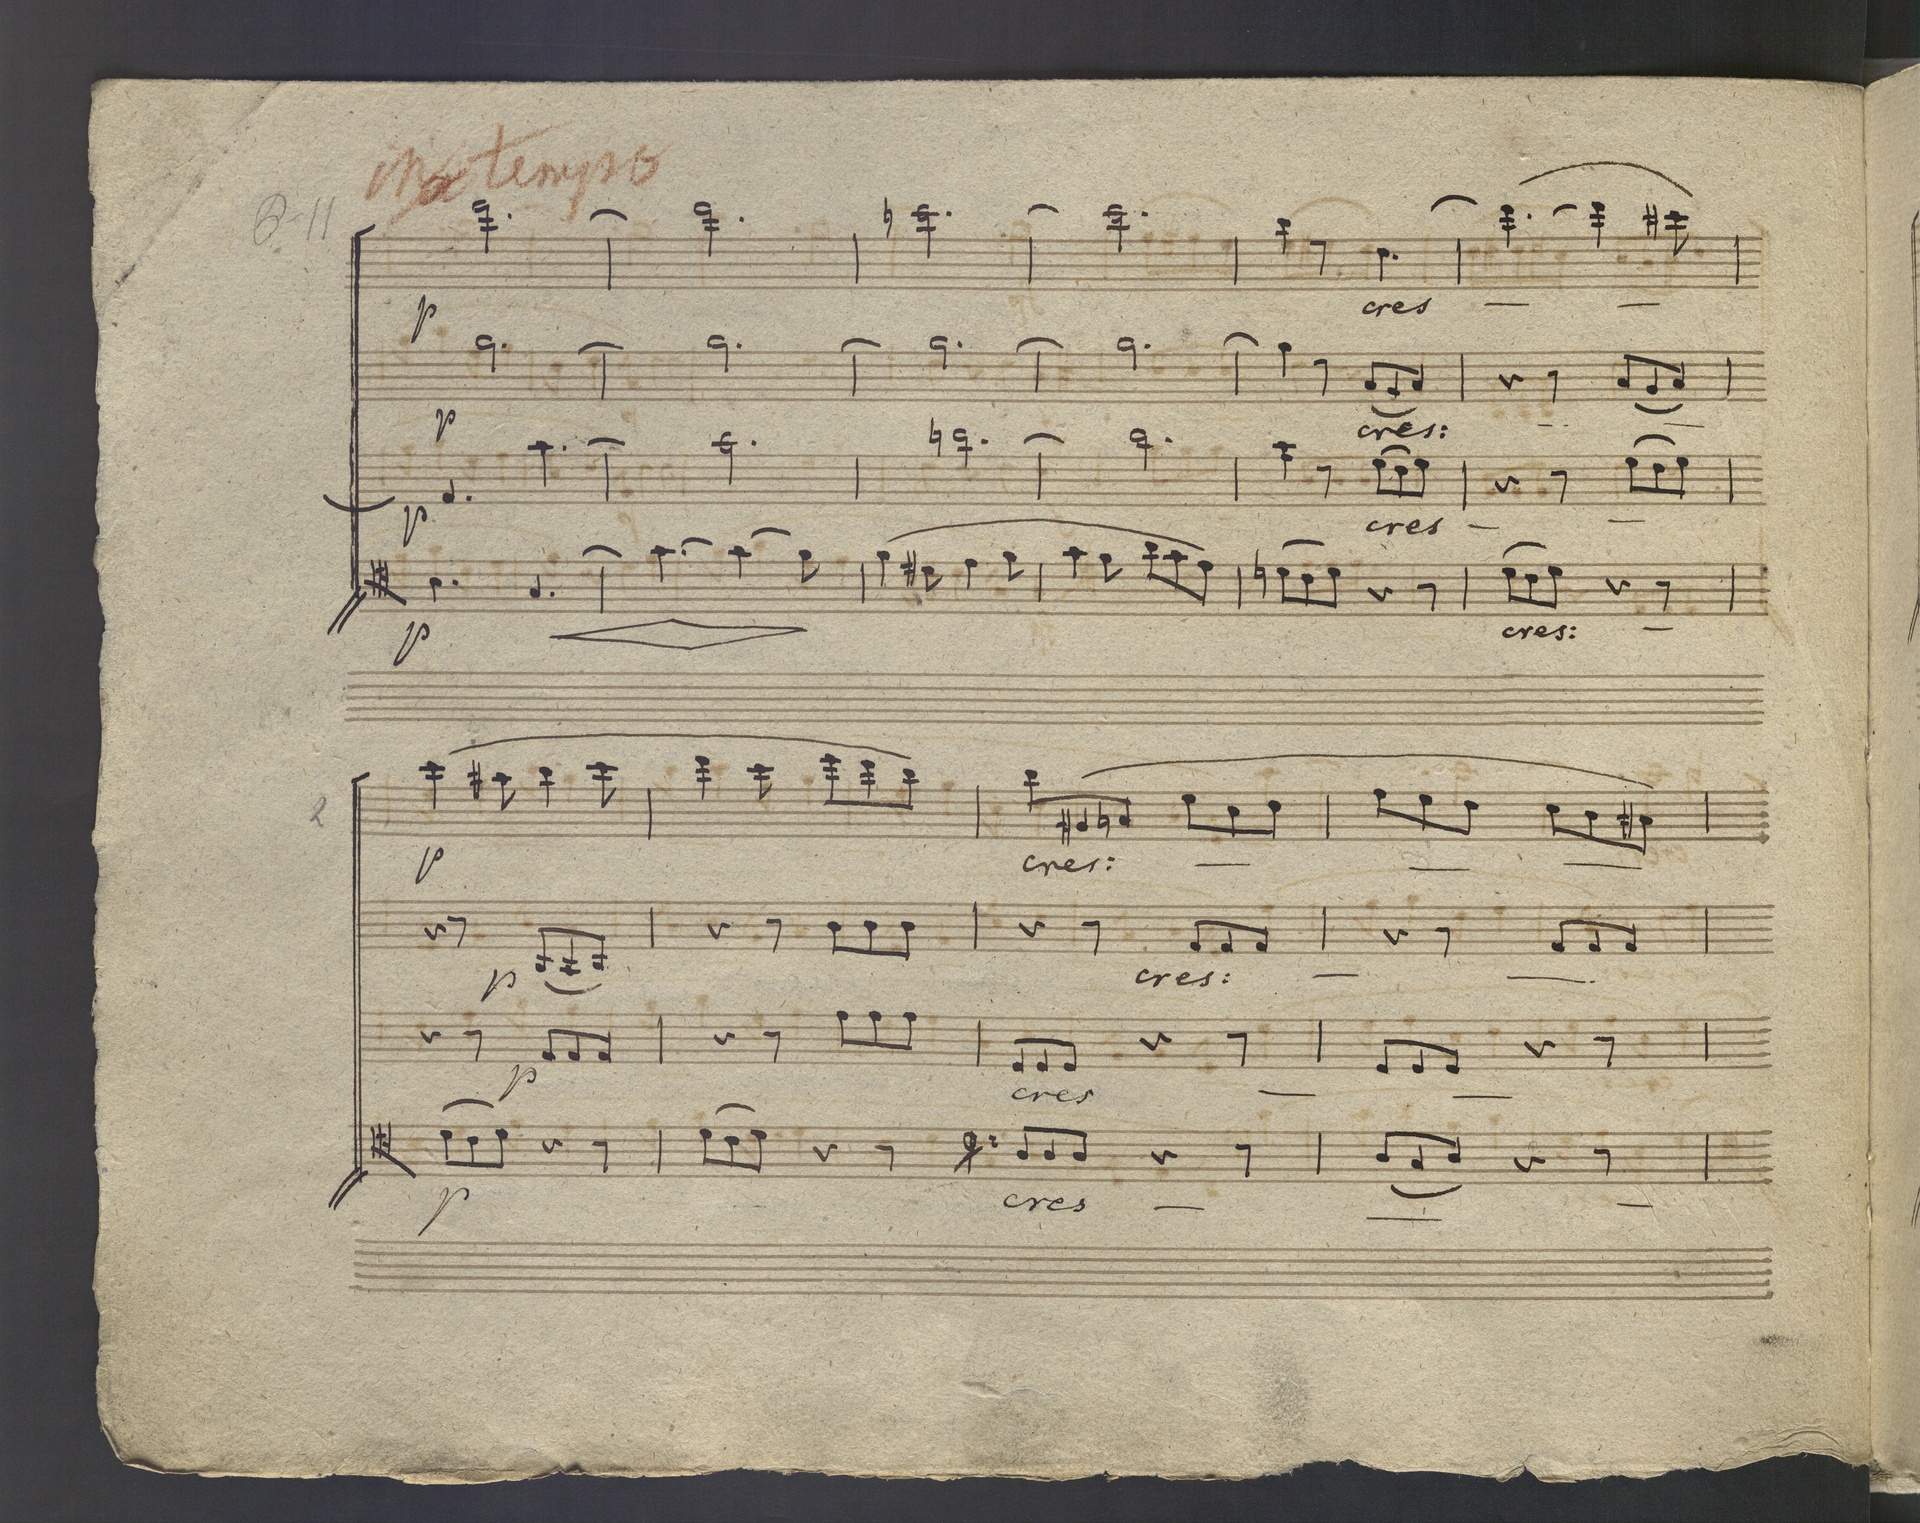 in a tempo
8-11
p
cres
p
cres:
p
cres
p
cres:
2
p
cres:
p
cres:
p
cres
p
cres